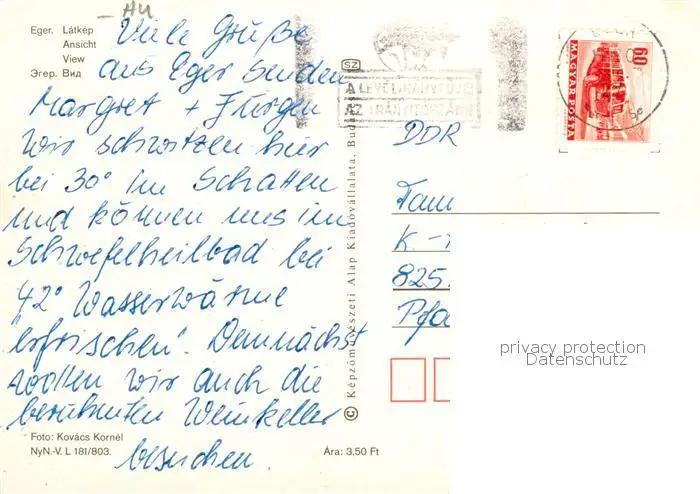 -HU
Eger. Látkép
Ansicht
View
Эгер. Вид
Viele Grüße
aus Eger senden
Margret + Jürgen
Wir schwitzen hier
bei 30° im Schatten
und können uns im
Schwefelheilbad bei
"42° Wasserwärme
erfrischen". Demnächst
wollen wir auch die
berühmten Weinkeller
besuchen.
Foto: Kovács Kornél
NyN.-V. L 181/803.
Ára: 3,50 Ft
© Képzőművészeti Alap Kiadóvállalata, Buda
SZ
A LEVÉL IRÁNYÍTÓJE
AZ IRÁNYÍTÓSZÁM
60
MAGYAR POSTA
DDR
Fam
K. -
825
Pfa
privacy protection
Datenschutz